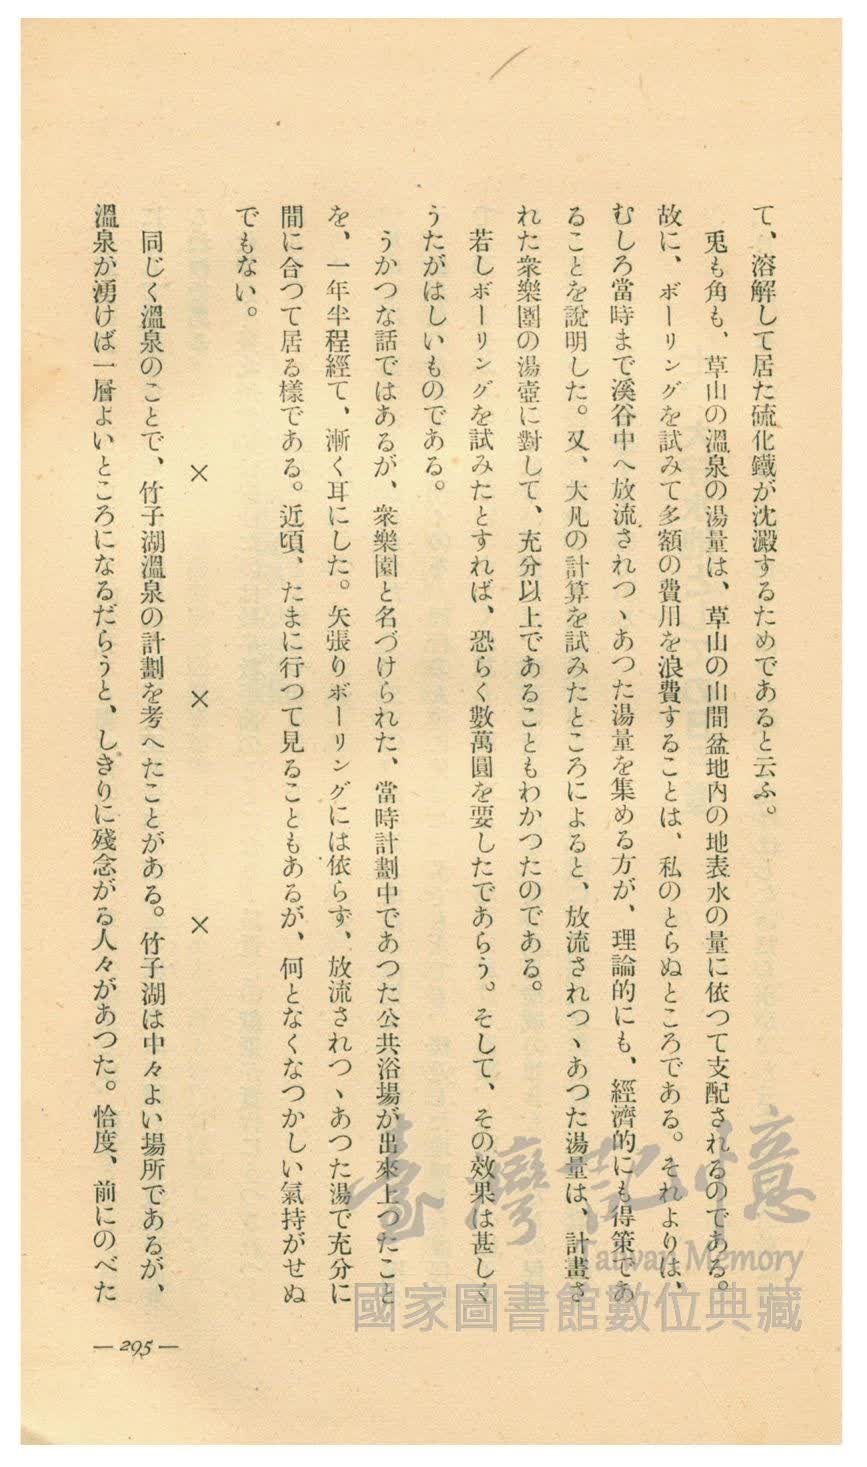 て、溶解して居た硫化鐵が沈澱するためであると云ふ。
兎も角も、草山の溫泉の湯量は、草山の山間盆地內の地表水の量に依つて支配されるのである。
故に、ボーリングを試みて多額の費用を浪費することは、私のとらぬところである。それよりは、
むしろ當時まで溪谷中へ放流されつゝあつた湯量を集める方が、理論的にも、經濟的にも得策であ
ることを說明した。又、大凡の計算を試みたところによると、放流されつゝあつた湯量は、計畫さ
れた衆樂園の湯壺に對して、充分以上であることもわかつたのである。
若しボーリングを試みたとすれば、恐らく數萬圓を要したであらう。そして、その效果は甚しく
うたがはしいものである。
うかつな話ではあるが、衆樂園と名づけられた、當時計劃中であつた公共浴場が出來上つたこと
を、一年半程經て、漸く耳にした。矢張りボーリングには依らず、放流されつゝあつた湯で充分に
間に合つて居る樣である。近頃、たまに行つて見ることもあるが、何となくなつかしい氣持がせぬ
でもない。
× × ×
同じく溫泉のことで、竹子湖溫泉の計劃を考へたことがある。竹子湖は中々よい場所であるが、
溫泉が湧けば一層よいところになるだらうと、しきりに殘念がる人々があつた。恰度、前にのべた
— 295 —
臺灣記憶
Taiwan Memory
國家圖書館數位典藏